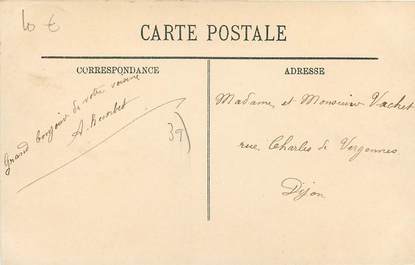 10 €
CARTE POSTALE
CORRESPONDANCE
ADRESSE
Grand bonjour de votre
A.
39
Madame et Monsieur Vachet
rue Charles de Vergennes
Dijon